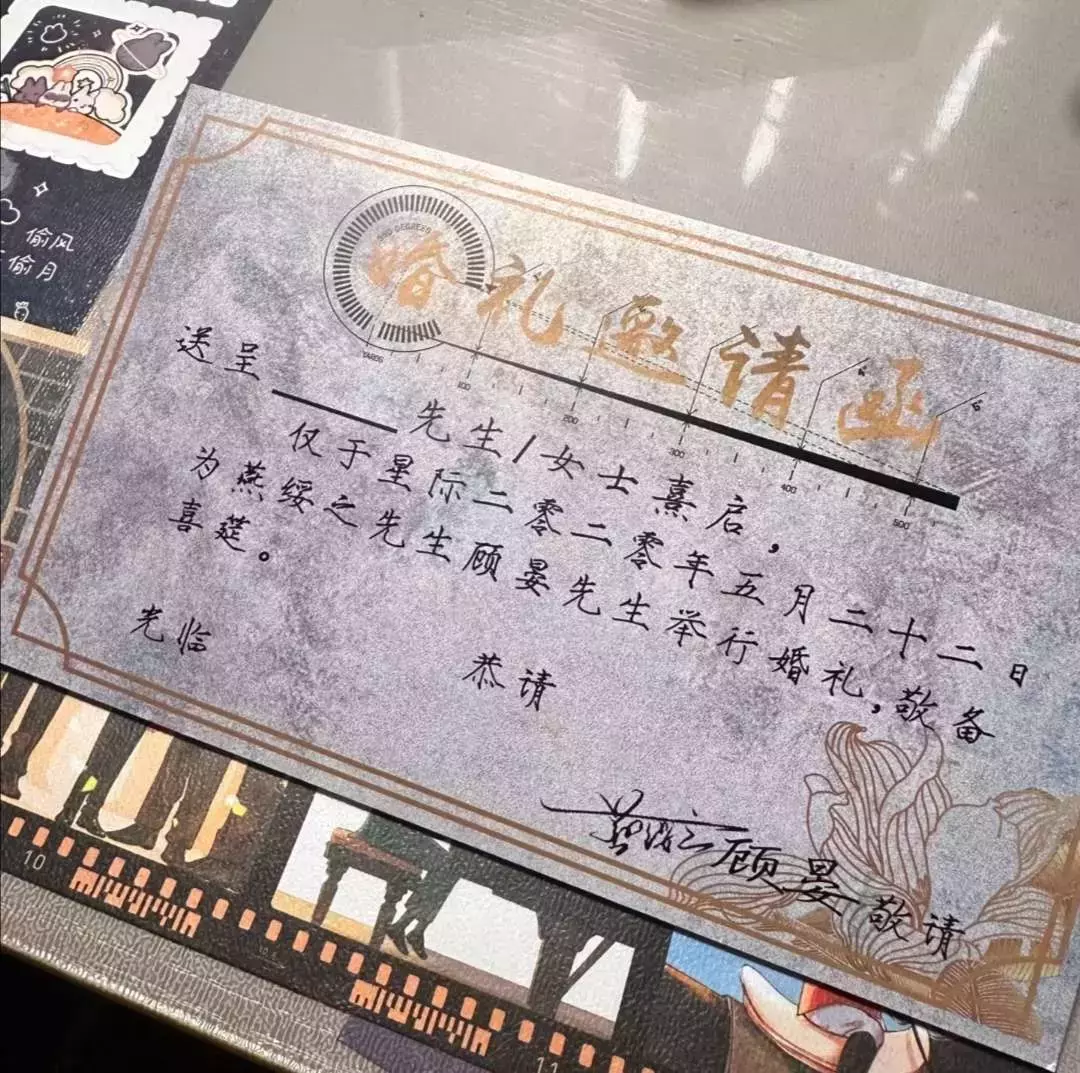 偷风
偷月
婚礼邀请函
360 DEGREES
YARDS 100 200 300 400 500
送呈______先生/女士熹启,
仅于星际二零二零年五月二十二日
为燕绥之先生顾晏先生举行婚礼,敬备
喜筵。
恭请
光临
燕绥之 顾晏 敬请
10
11